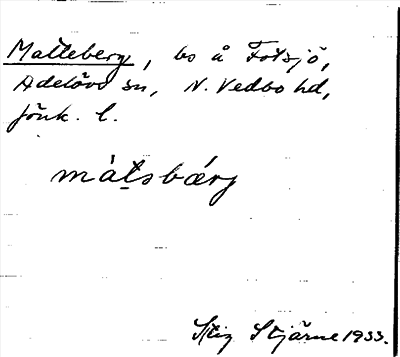 Matteberg, bo å Fotsjö,
Adelövs sn, N. Vedbo hd,
Jönk. l.
mátsbǽrg
Stig Stjärne 1933.